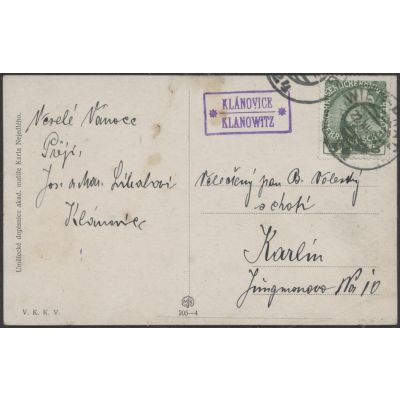 KLÁNOVICE
KLANOWITZ
Veselé Vánoce
Přejí
Jos. a Mar.
Klánovice
Velectěný pan B. Voleský
s chotí
Karlín
Jungmanova
Umělecké dopisnice akad. malíře Karla Nejedlého.
V. K. K. V.
205—4